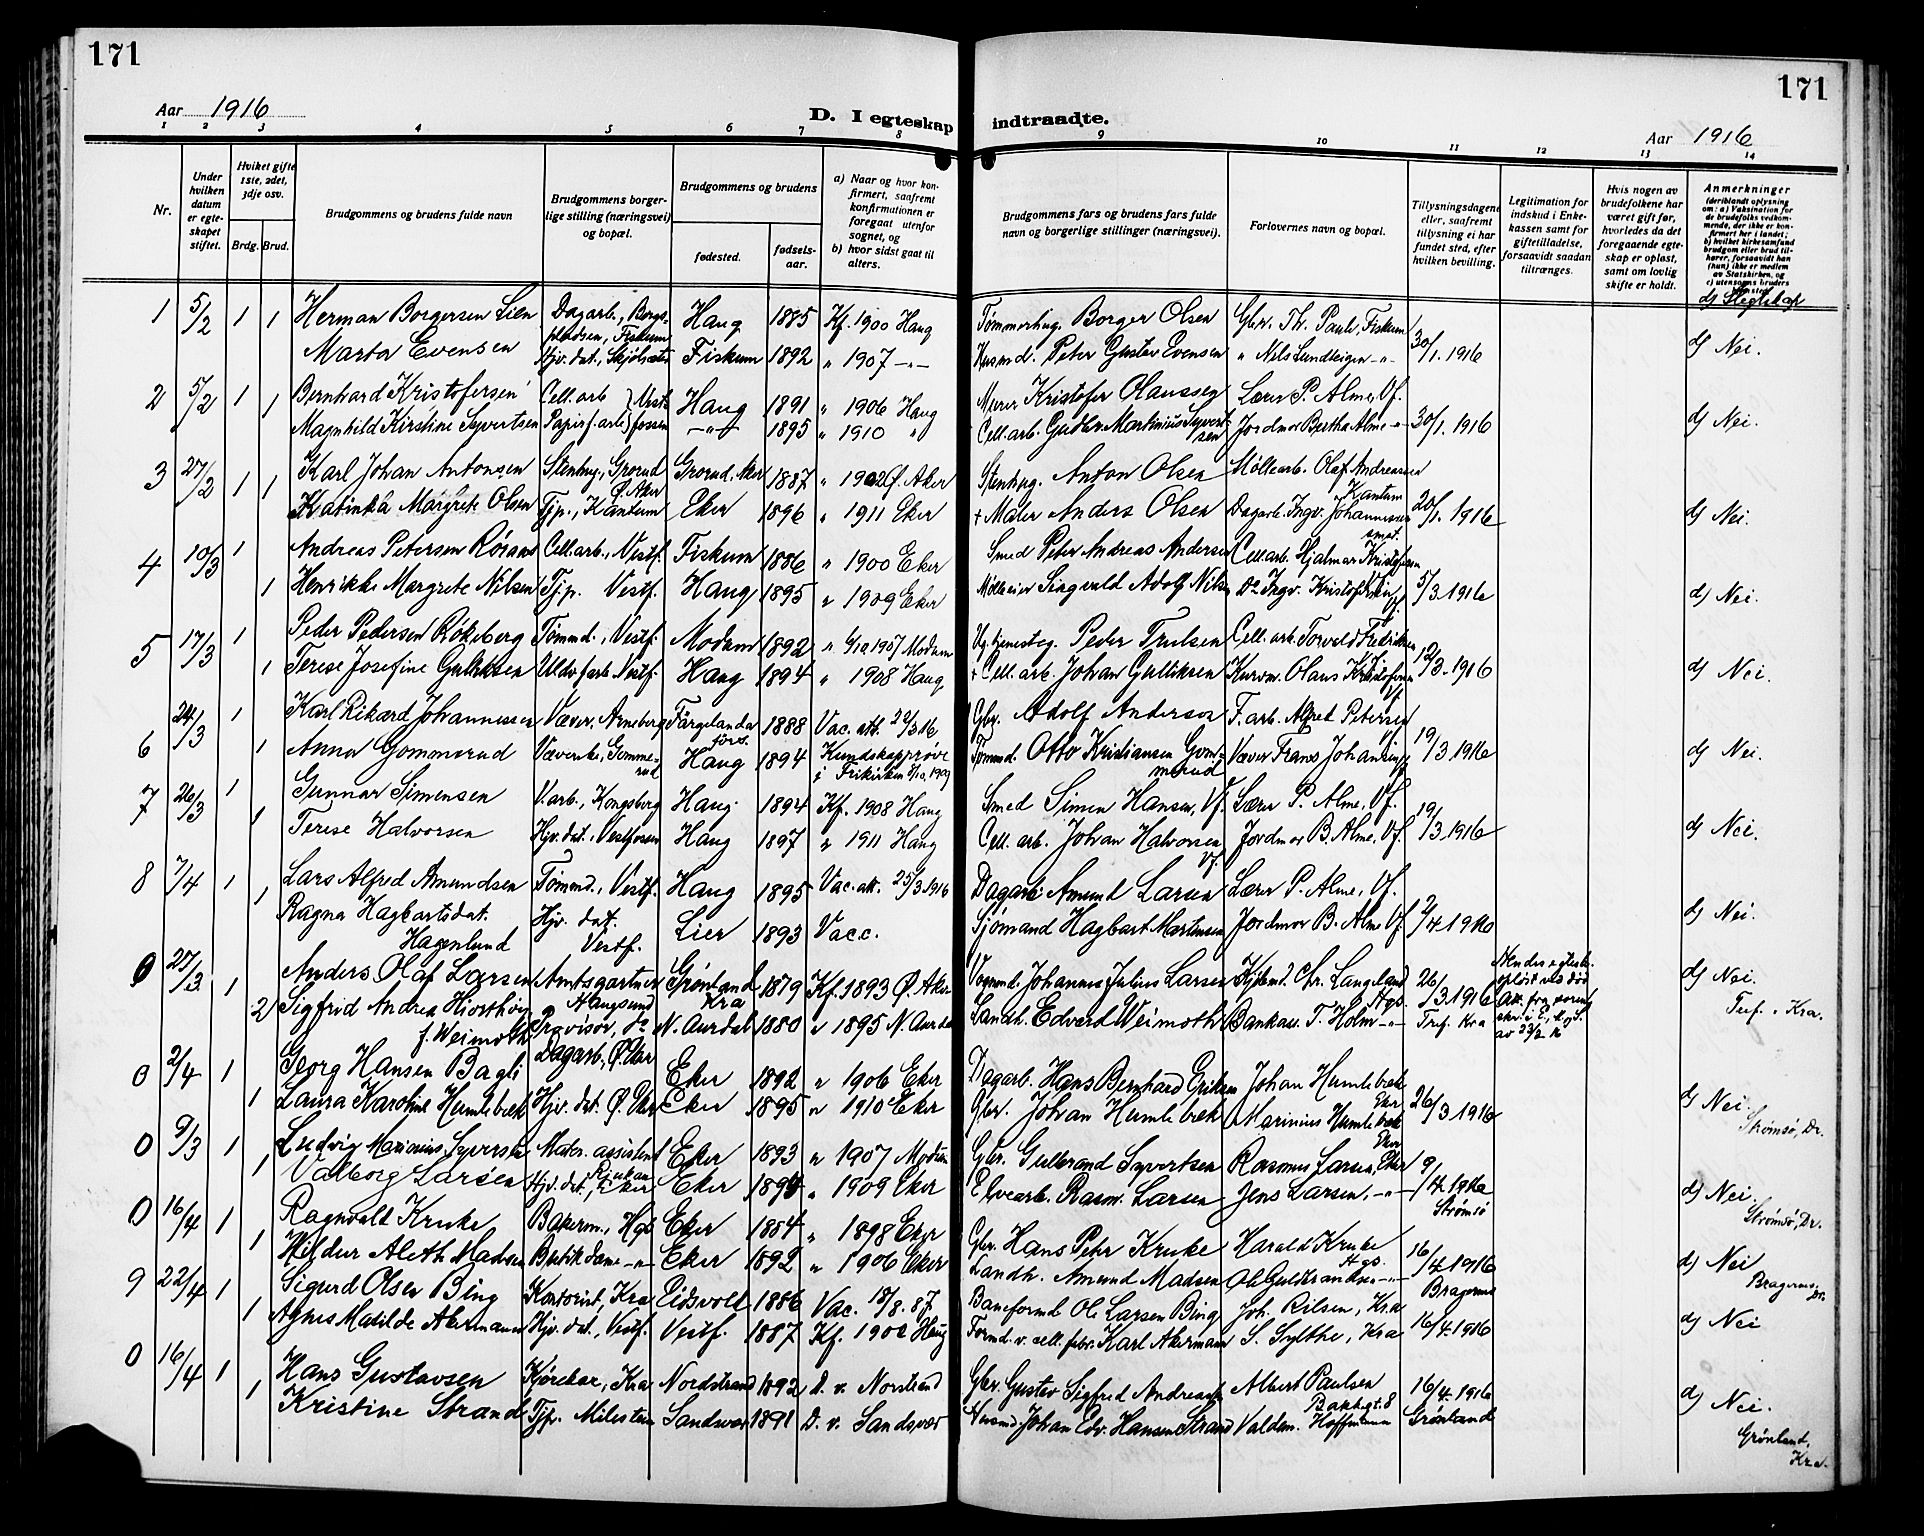 171
171
Aar 1916
D. I egteskap indtraadte.
Aar 1916
1 2 3 4 5 6 7 8 9 10 11 12 13 14
Nr.
Under hvilken datum er egteskapet stiftet.
Hvilket gifte 1ste, 2det, 3dje osv.
Brdg. Brud.
Brudgommens og brudens fulde navn
Brudgommens borgerlige stilling (næringsvei) og bopæl.
Brudgommens og brudens
fødested.
fødselsaar.
a) Naar og hvor konfirmert, saafremt konfirmationen er foregaat utenfor sognet, og
b) hvor sidst gaat til alters.
Brudgommens fars og brudens fars fulde navn og borgerlige stillinger (næringsvei).
Forlovernes navn og bopæl.
Tillysningsdagene eller, saafremt tillysning ei har fundet sted, efter hvilken bevilling.
Legitimation for indskud i Enkekassen samt for giftetilladelse, forsaavidt saadan tiltrænges.
Hvis nogen av brudefolkene har været gift før, hvorledes da det foregaaende egteskap er opløst, samt om lovlig skifte er holdt.
Anmerkninger (deriblandt oplysning om: a) Vaksination for de brudefolks vedkommende, der ikke er konfirmert her i landet; b) hvilket kirkesamfund brudgom eller brud tilhører, forsaavidt han (hun) ikke er medlem av Statskirken, og c) utensogns bruders
d) Slegtskap
1 5/2 1 Herman Borgersen Lien Dagarb., Bergs- Haug 1885 Kf. 1900 Haug Tømmerhug. Borger Olsen Gbr. Th. Paule, Fiskum 30/1. 1916 d) Nei.
1 Marta Evensen Hjv. dat., Fiskum 1892 " 1907 -"- Husmd. Peter Gustav Evensen " Nels Lundteigen -"-
2 5/2 1 Bernhard Kristofersen Cell. arb Vestfossen Haug 1891 " 1906 Haug Murer Kristofer Olaussen Lærer P. Alme, Vf. 30/1. 1916 d) Nei.
1 Magnhild Kirstine Syvertsen Papirf. arb. -"- 1895 " 1910 " Cell. arb. Gudbr. Martinius Syvertsen Jordmor Bertha Alme -"-
3 27/2 1 Karl Johan Antonsen Stenhug., Grorud Ø. Aker Grorud, Aker 1887 " 1902 Ø. Aker Stenhug. Anton Olsen Møllearb. Olaf Andreassen Kantum 20/1. 1916 d) Nei.
1 Katinka Margrete Olsen Tjp., Kantum Eker 1896 " 1911 Eker + Maler Anders Olsen Dagarb. Ingv. Johannessen smst.
4 10/3 1 Andreas Petersen Cell. arb., Vestf. Fiskum 1886 " 1900 Eker Smed Peter Andreas Andersen Cell. arb. Hjalmar Kristofersen 5/3. 1916 d) Nei.
1 Henrikke Margrete Nilsen Tjp. Vestf. Haug 1895 " 1909 Eker Adolf Nilsen Do Ingv. Kristofersen Vf.
5 17/3 1 Peder Pedersen Røkeberg Tømmd., Vestf. Modum 1892 " 6/10 1907 Modum Peder Trulsen Cell. arb. Torvald Fredriksen 12/3. 1916 d) Nei.
1 Terese Josefine Gulliksen Uldvf. arb. Vestf. Haug 1894 " 1908 Haug + Cell. arb. Johan Gulliksen Kurvm. Olaus Kristofersen Vf.
6 24/3 1 Karl Rikard Johannessen Væver, Arneberg Färgelanda förs. 1888 Vac. att. 22/3 16 Gbr. Adolf Anderson F. arb. Alfred Petersen Vf. 19/3. 1916 d) Nei.
1 Anna Gommerud Væverske, Gommerud Haug 1894 Kundskapsprøve i Frikirken 1909 Tømmd. Otto Kristiansen Gommerud Væver Frans Johansen
7 26/3 1 Gunnar Simensen V. arb., Kongsberg Haug 1894 Kf. 1908 Haug Smed Simen Hansen, Vf. Lærer P. Alme, Vf. 19/3. 1916 d) Nei.
1 Terese Halvorsen Hjv. dat., Vestfossen Haug 1897 " 1911 Haug Cell. arb. Johan Halvorsen Vf. Jordmor B. Alme, Vf.
8 7/4 1 Lars Alfred Amundsen Tømmd., Vestf. Haug 1895 Vac. att. 25/3. 1916 Dagarb. Amund Larsen Lærer P. Alme, Vf. 2/4 1916 d) Nei.
1 Ragna Hagbartsdat. Hagenlund Hjv. dat. Vestf. Lier 1893 Vacc. Sjømand Hagbart Martinsen Jordmor B. Alme Vf.
0 27/3 1 Anders Olaf Larsen Amtsgartner Grønland Kra 1879 Kf. 1893 Ø. Aker Vognmd. Johannes Julius Larsen Kjøbmd. Chr. Langeland Hgs. 26/3. 1916 d) Nei.
2 Sigfrid Andrea Hiorthøy f. Weimoth Provisor, do N. Aurdal 1880 " 1895 N. Aurdal Landh. Edvard Weimoth Bankas. T. Holm -"- Tref. Kra Tref. Kra.
0 2/4 1 Georg Hansen Bagli Dagarb., Ø. Eker Eker 1892 " 1906 Eker Dagarb. Hans Bernhard Eriksen Johan Humlebæk Eker 26/3. 1916 d) Nei.
1 Laura Karoline Humlebæk Hjv. dat. Ø. Eker Eker 1895 " 1910 Eker Gbr. Johan Humlebæk Marinius Humlebæk Eker Strømsø, Dr.
0 9/3 1 Ludvig Marinius Syversen Maskn. assistent Rjukan Eker 1893 " 1907 Modum Gbr. Gulbrand Syvertsen Rasmus Larsen, Eker 9/4. 1916 Strømsø d) Nei.
1 Valborg Larsen Hjv. dat., Eker Eker 1890 " 1909 Eker Elvearb. Rasm. Larsen Jens Larsen, -"- Strømsø, Dr.
0 16/4 1 Ragnvalt Kruke Bakerm., Hgs Eker 1884 " 1898 Eker Gbr. Hans Petr Kruke Harald Kruke Hgs. 16/4. 1916 Bragernes d) Nei
1 Hildur Aleth Madsen Butikdame -"- Eker 1892 " 1906 Eker Landh. Amund Madsen Ole Guldbrandsen -"- Bragernes, Dr.
9 22/4 1 Sigurd Olsen Bing Kontorist, Kra Eidsvoll 1886 Vac. 18/8. 87 Baneformd Ole Larsen Bing Joh. Rilsen, Kra 16/4. 1916 d) Nei
1 Agnes Matilde Akermann Hjv. dat., Vestf. Vestf. 1887 Kf. 1902 Haug Formd. v. cell. fabr. Karl Akermann S. Sylthe, Kra
0 16/4 1 Hans Gustavsen Kjørekar, Kra Nordstrand 1892 D. v. Norstrand Gbr. Gustav Sigfred Andreassen Albert Paulsen Bakkegt. 8 16/4. 1916 Grønland d) Nei.
1 Kristine Strand Tjp. Milesteen Sandsvær 1891 D. v. Sandsvær Johan Edv. Hansen Strand Valdem. Hoffmann Grønland, Kra.